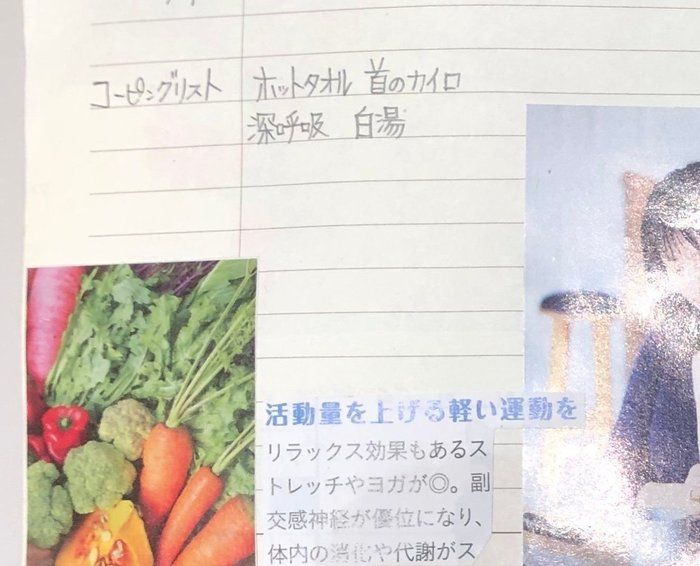 コーピングリスト ホットタオル 首のカイロ
深呼吸 白湯
活動量を上げる軽い運動を
リラックス効果もあるス
トレッチやヨガが◎。副
交感神経が優位になり、
体内の消化や代謝がス